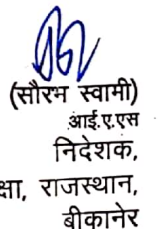 (सौरभ स्वामी)
आई.ए.एस
निदेशक,
क्षा, राजस्थान,
बीकानेर